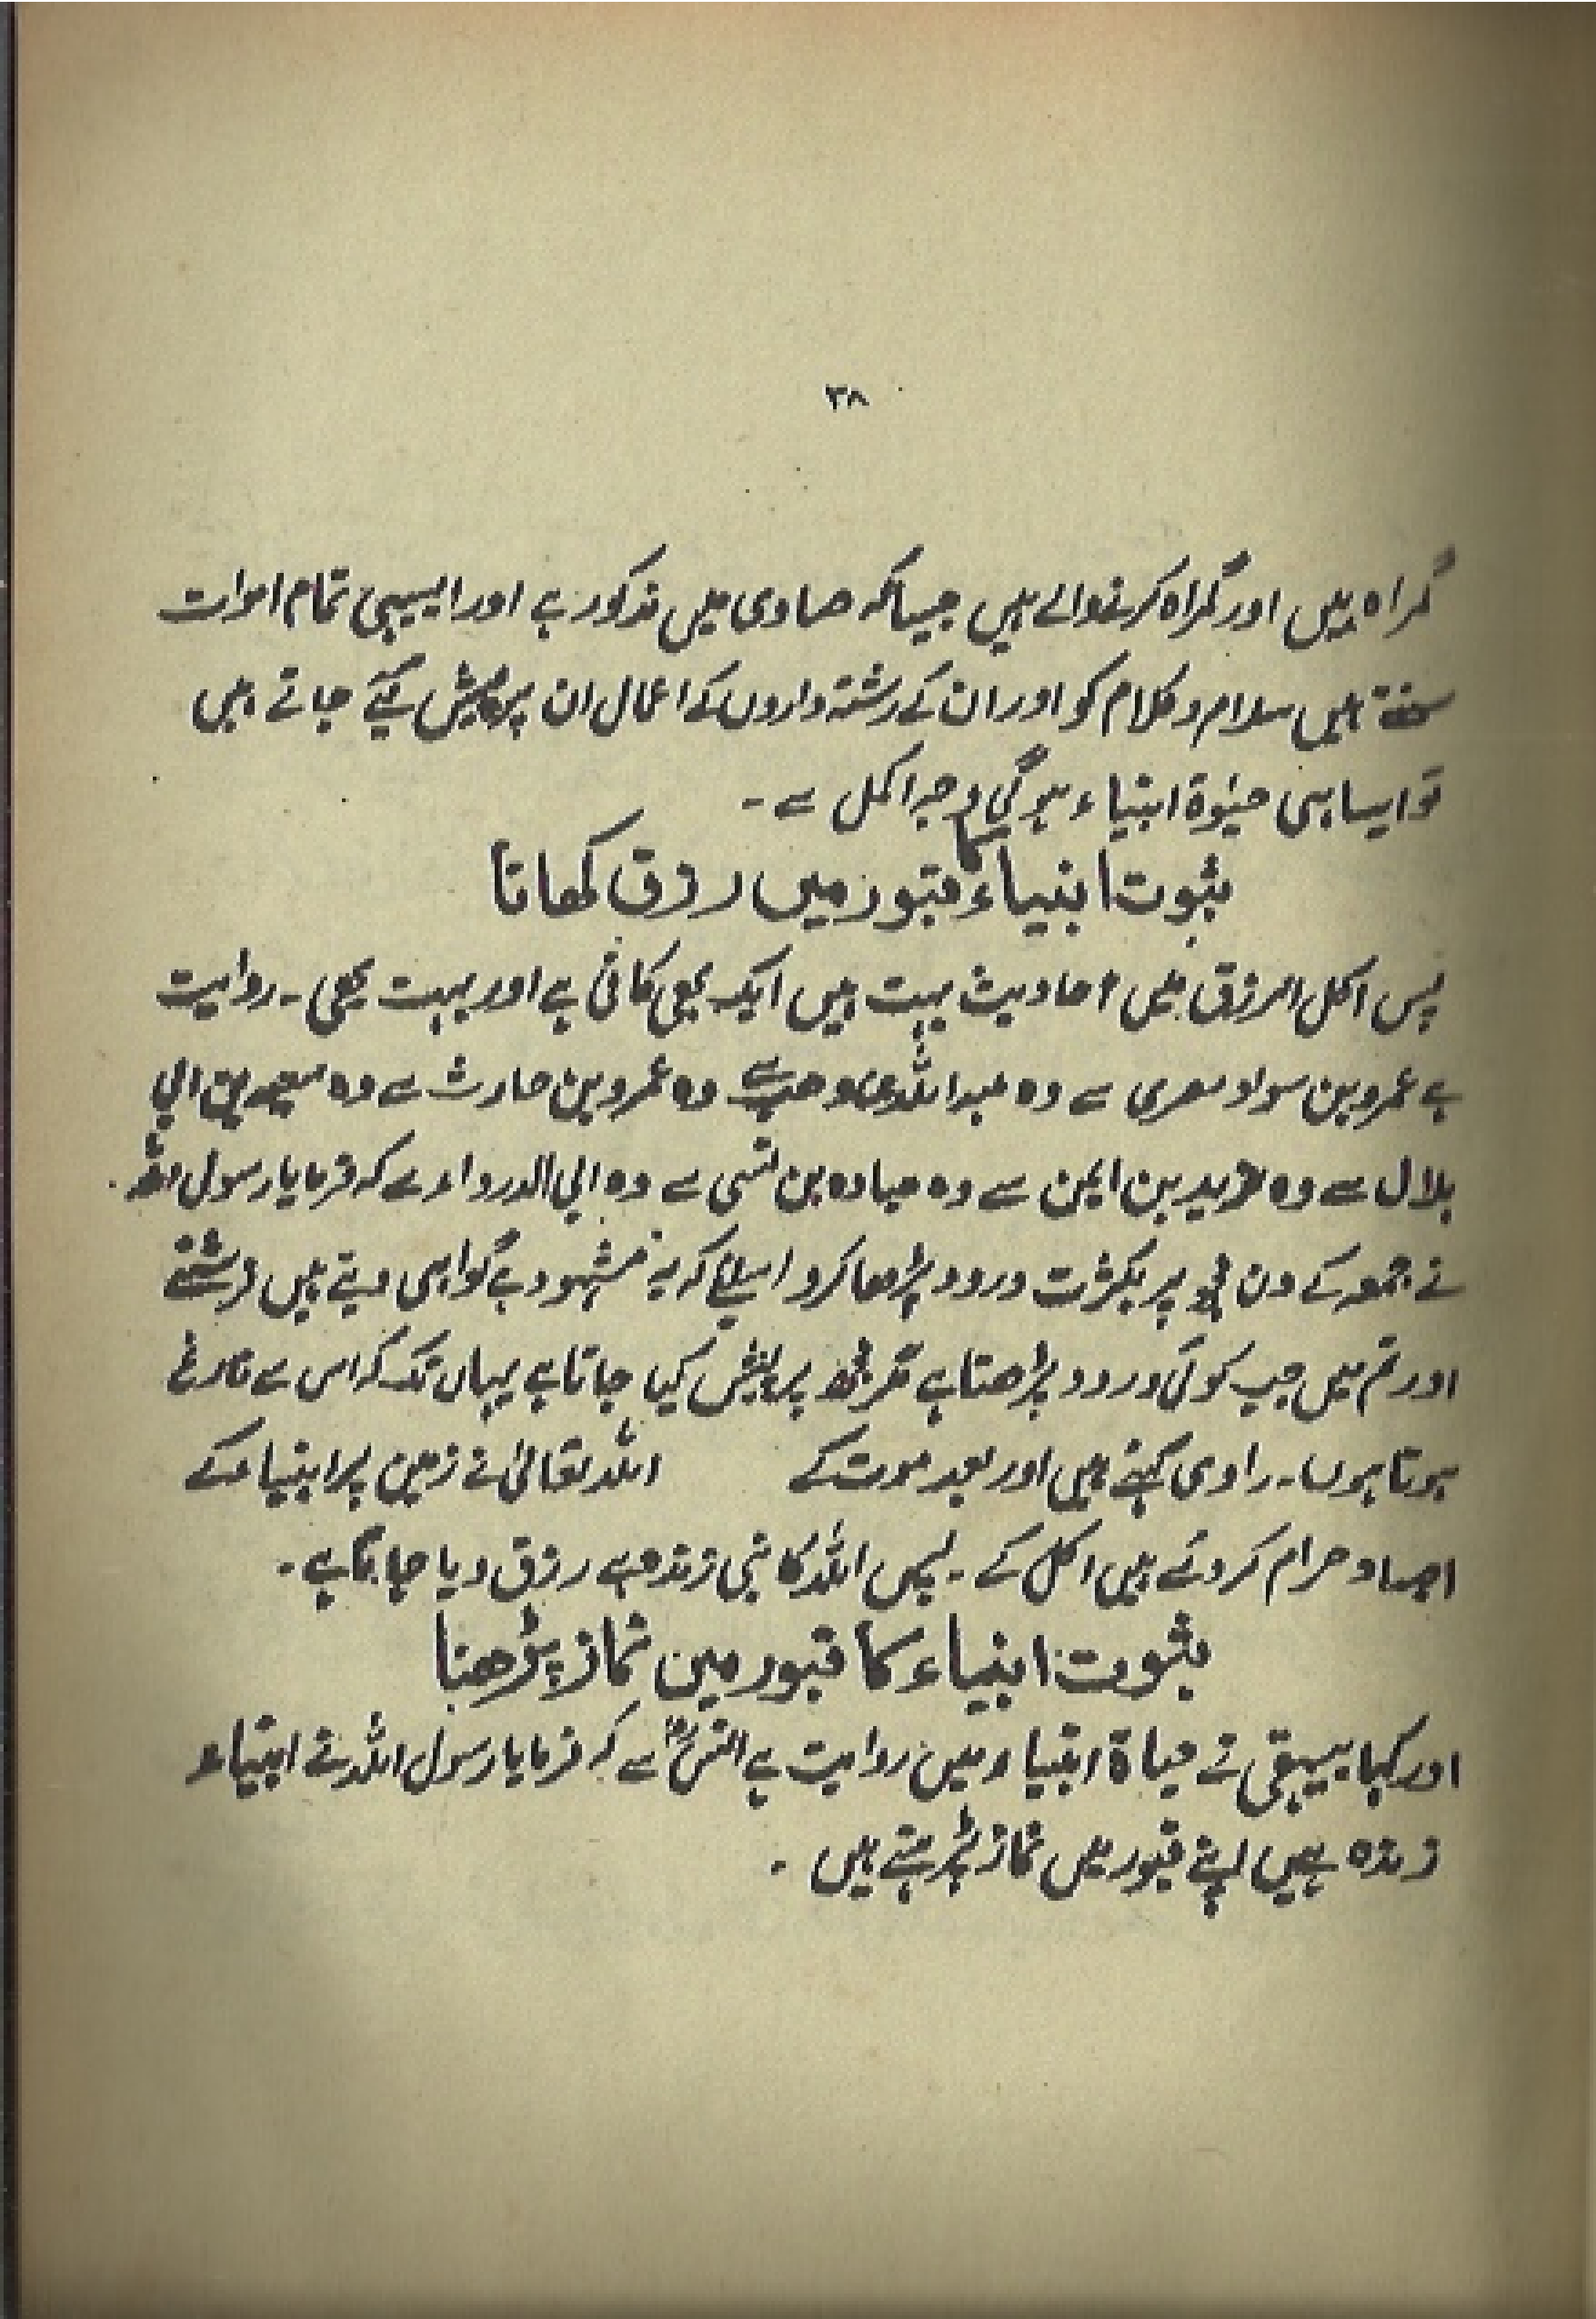 ۳۸
گمراہ ہیں اور گمراہ کرنیوالے ہیں جیساکہ صاوی میں مذکور ہے اور ایسیہی تمام اموات
سنتے ہیں سلام و کلام کو اور ان کے رشتہ داروں کے اعمال ان پر پیش کیے جاتے ہیں
تو ایسا ہی حیٰوۃ انبیاء ہوگی وجہ اکمل سے ۔
ثبوت انبیاء کا قبور میں رزق کھانا
پس اکل الرزق میں احادیث بہت ہیں ایک بھی کافی ہے اور بہت بھی ۔ روایت
ہے عمرو بن سواد مصری سے وہ عبداللہ وھب سے وہ عمرو بن حارث سے وہ سعید بن ابی
ہلال سے وہ زید بن ایمن سے وہ عبادہ بن نسی سے وہ ابی الدرداء سے کہ فرمایا رسول اللہ
نے جمعہ کے دن مجھ پر بکثرت درود پڑھا کرو اسلئے کہ یہ مشہود ہے گواہی دیتے ہیں فرشتے
اور تم میں جب کوئی درود پڑھتا ہے مگر مجھ پر پیش کیا جاتا ہے یہاں تک کہ اس سے فارغ
ہوتا ہوں ۔ راوی کہتے ہیں اور بعد موت کے اللہ تعالیٰ نے زمین پر انبیاء کے
اجساد حرام کر دئے ہیں اکل کے ۔ پس اللہ کا نبی زندہ ہے رزق دیا جاتا ہے ۔
ثبوت انبیاء کا قبور میں نماز پڑھنا
اور کہا بیہقی نے حیاۃ انبیاء میں روایت ہے انسؓ سے کہ فرمایا رسول اللہ نے انبیاء
زندہ ہیں اپنے قبور میں نماز پڑہتے ہیں ۔